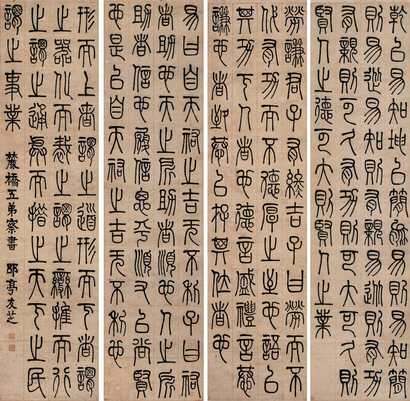 乾以易知坤以簡能易則易知簡
則易從易知則有親易從則有功
有親則可久有功則可大可久則
賢人之德可大則賢人之業
勞謙君子有終吉子曰勞而不
伐有功而不德厚之至也語以
其功下人者也德言盛禮言恭
謙也者致恭以存其位者也
易曰自天祐之吉无不利子曰祐
者助也天之所助者順也人之所
助者信也履信思乎順又以尚賢
也是以自天祐之吉无不利也
形而上者謂之道形而下者謂
之器化而裁之謂之變推而行
之謂之通舉而措之天下之民
謂之事業
麓橋五弟察書 郘亭友芝